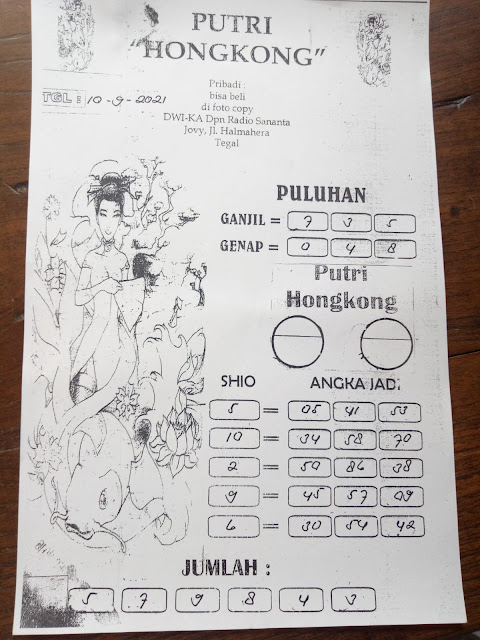 PUTRI
"HONGKONG"
Pribadi :
bisa beli
di foto copy
DWI-KA Dpn Radio Sananta
Jovy, Jl. Halmahera
Tegal
TGL : 10-9-2021
PULUHAN
GANJIL = 7 3 5
GENAP = 0 4 8
Putri
Hongkong
SHIO ANGKA JADI
5 = 05 41 53
10 = 34 58 70
2 = 50 86 38
9 = 45 57 09
6 = 30 54 42
JUMLAH :
5 7 9 8 4 3